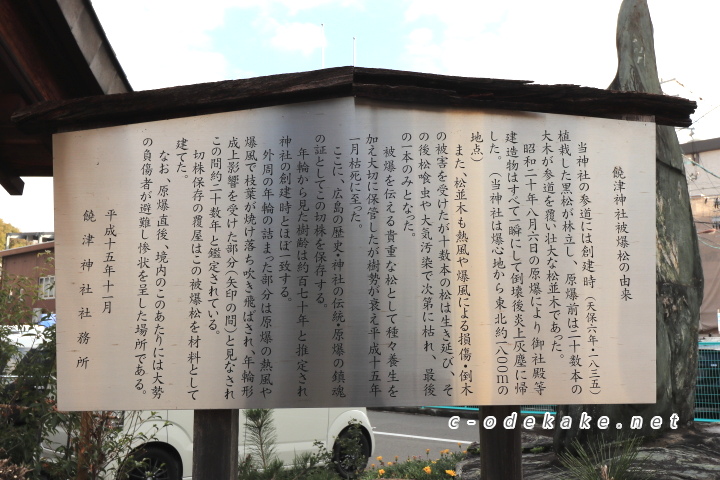 饒津神社被爆松の由来
当神社の参道には創建時(天保六年・一八三五)
植栽した黒松が林立し、原爆前は二十数本の
大木が参道を覆い壮大な松並木であった。
昭和二十年八月六日の原爆により御社殿等
建造物はすべて一瞬にして倒壊後炎上灰塵に帰
した。(当神社は爆心地から東北約一八〇〇mの
地点)
また、松並木も熱風や爆風による損傷・倒木
の被害を受けたが十数本の松は生き延び、そ
の後松喰虫や大気汚染で次第に枯れ、最後
の一本のみとなった。
被爆を伝える貴重な松として種々養生を
加え大切に保管したが樹勢が衰え平成十五年
一月枯死に至った。
ここに、広島の歴史・神社の伝統・原爆の鎮魂
の証としてこの切株を保存する。
年輪から見た樹齢は約百七十年と推定され
神社の創建時とほぼ一致する。
外周の年輪の詰まった部分は原爆の熱風や
爆風で枝葉が焼け落ち吹き飛ばされ、年輪形
成上影響を受けた部分(矢印の間)と見なされ
この間約二十数年と鑑定されている。
切株保存の覆屋はこの被爆松を材料として
建てた。
なお、原爆直後、境内のこのあたりには大勢
の負傷者が避難し惨状を呈した場所である。
平成十五年十一月
饒津神社社務所
c-odekake.net